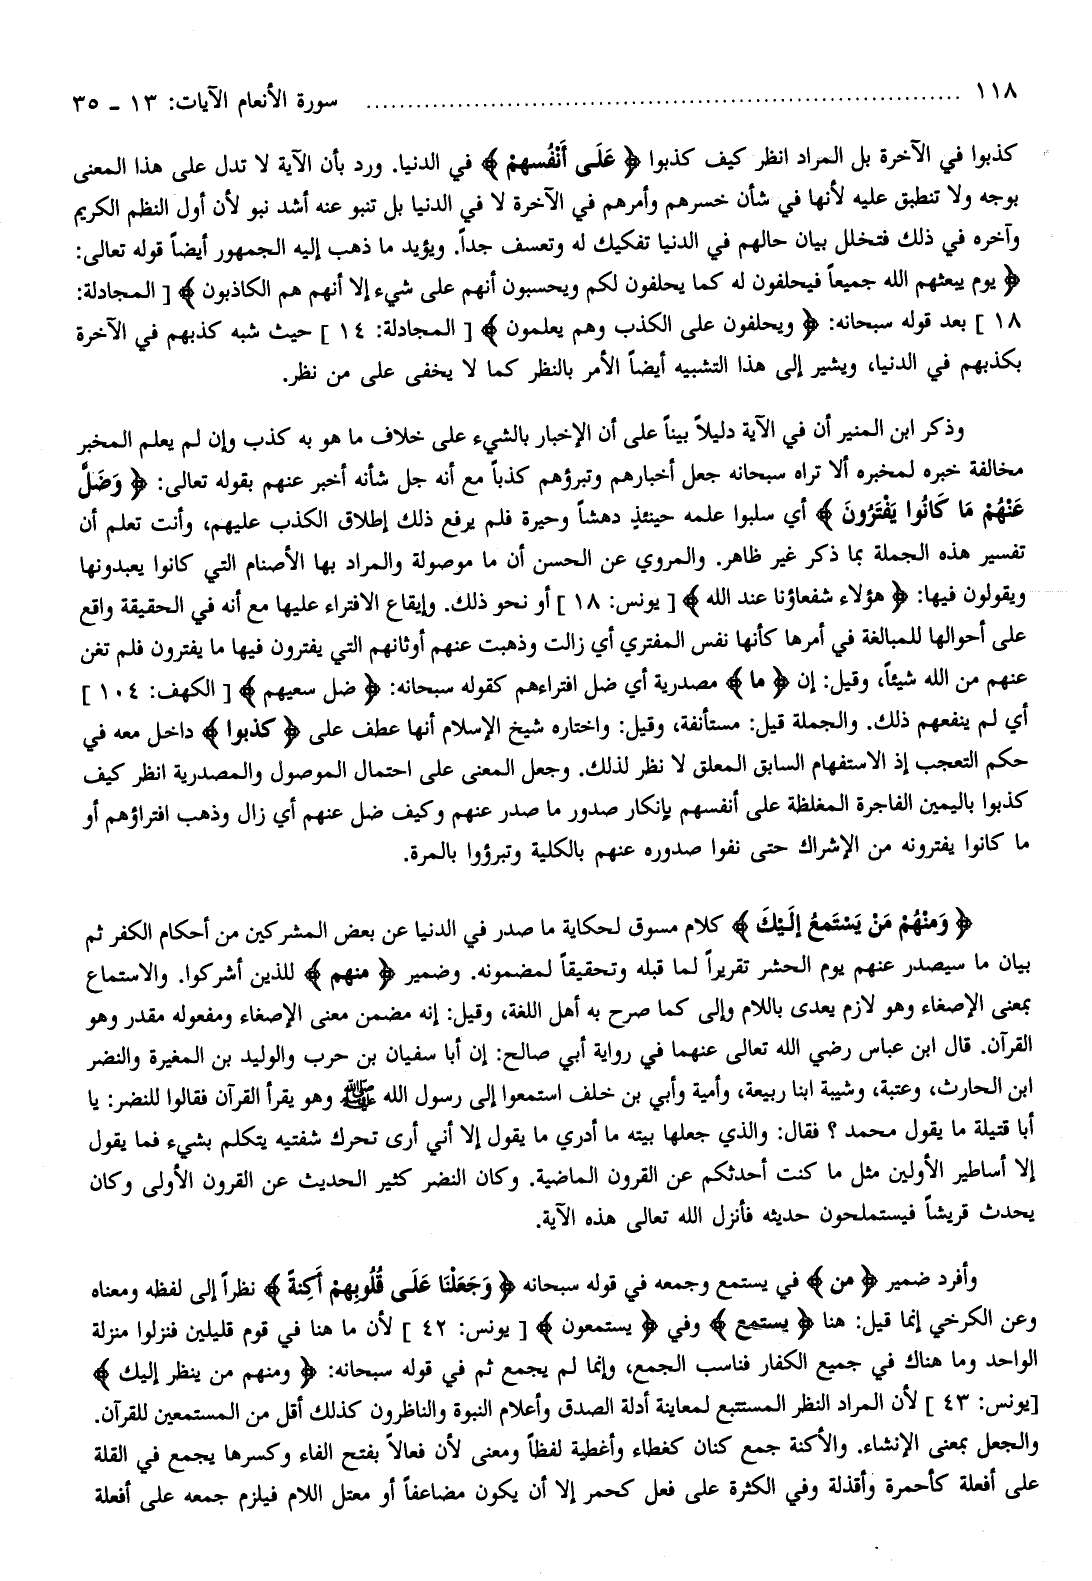 ١١٨ ........................................................................ سورة الأنعام الآيات: ١٣ ـ ٣٥
كذبوا في الآخرة بل المراد انظر كيف كذبوا ﴿ عَلَى أَنْفُسهمْ ﴾ في الدنيا. ورد بأن الآية لا تدل على هذا المعنى
بوجه ولا تنطبق عليه لأنها في شأن خسرهم وأمرهم في الآخرة لا في الدنيا بل تنبو عنه أشد نبو لأن أول النظم الكريم
وآخره في ذلك فتخلل بيان حالهم في الدنيا تفكيك له وتعسف جداً. ويؤيد ما ذهب إليه الجمهور أيضاً قوله تعالى:
﴿ يوم يبعثهم الله جميعاً فيحلفون له كما يحلفون لكم ويحسبون أنهم على شيء إلا أنهم هم الكاذبون ﴾ [ المجادلة:
١٨ ] بعد قوله سبحانه: ﴿ ويحلفون على الكذب وهم يعلمون ﴾ [ المجادلة: ١٤ ] حيث شبه كذبهم في الآخرة
بكذبهم في الدنيا، ويشير إلى هذا التشبيه أيضاً الأمر بالنظر كما لا يخفى على من نظر.
وذكر ابن المنير أن في الآية دليلاً بيناً على أن الإخبار بالشيء على خلاف ما هو به كذب وإن لم يعلم المخبر
مخالفة خبره لمخبره ألا تراه سبحانه جعل أخبارهم وتبرؤهم كذباً مع أنه جل شأنه أخبر عنهم بقوله تعالى: ﴿ وَضَلَّ
عَنْهُمْ مَا كَانُوا يَفْتَرُونَ ﴾ أي سلبوا علمه حينئذٍ دهشاً وحيرة فلم يرفع ذلك إطلاق الكذب عليهم، وأنت تعلم أن
تفسير هذه الجملة بما ذكر غير ظاهر. والمروي عن الحسن أن ما موصولة والمراد بها الأصنام التي كانوا يعبدونها
ويقولون فيها: ﴿ هؤلاء شفعاؤنا عند الله ﴾ [ يونس: ١٨ ] أو نحو ذلك. وإيقاع الافتراء عليها مع أنه في الحقيقة واقع
على أحوالها للمبالغة في أمرها كأنها نفس المفتري أي زالت وذهبت عنهم أوثانهم التي يفترون فيها ما يفترون فلم تغن
عنهم من الله شيئاً، وقيل: إن ﴿ ما ﴾ مصدرية أي ضل افتراءهم كقوله سبحانه: ﴿ ضل سعيهم ﴾ [ الكهف: ١٠٤ ]
أي لم ينفعهم ذلك. والجملة قيل: مستأنفة، وقيل: واختاره شيخ الإسلام أنها عطف على ﴿ كذبوا ﴾ داخل معه في
حكم التعجب إذ الاستفهام السابق المعلق لا نظر لذلك. وجعل المعنى على احتمال الموصول والمصدرية انظر كيف
كذبوا باليمين الفاجرة المغلظة على أنفسهم بإنكار صدور ما صدر عنهم وكيف ضل عنهم أي زال وذهب افتراؤهم أو
ما كانوا يفترونه من الإشراك حتى نفوا صدوره عنهم بالكلية وتبرؤوا بالمرة.
﴿ وَمنْهُمْ مَنْ يَسْتَمعُ إلَيْكَ ﴾ كلام مسوق لحكاية ما صدر في الدنيا عن بعض المشركين من أحكام الكفر ثم
بيان ما سيصدر عنهم يوم الحشر تقريراً لما قبله وتحقيقاً لمضمونه. وضمير ﴿ منهم ﴾ للذين أشركوا. والاستماع
بمعنى الإصغاء وهو لازم يعدى باللام وإلى كما صرح به أهل اللغة، وقيل: إنه مضمن معنى الإصغاء ومفعوله مقدر وهو
القرآن. قال ابن عباس رضي الله تعالى عنهما في رواية أبي صالح: إن أبا سفيان بن حرب والوليد بن المغيرة والنضر
ابن الحارث، وعتبة، وشيبة ابنا ربيعة، وأمية وأبي بن خلف استمعوا إلى رسول الله ﷺ وهو يقرأ القرآن فقالوا للنضر: يا
أبا قتيلة ما يقول محمد ؟ فقال: والذي جعلها بيته ما أدري ما يقول إلا أني أرى تحرك شفتيه يتكلم بشيء فما يقول
إلا أساطير الأولين مثل ما كنت أحدثكم عن القرون الماضية. وكان النضر كثير الحديث عن القرون الأولى وكان
يحدث قريشاً فيستملحون حديثه فأنزل الله تعالى هذه الآية.
وأفرد ضمير ﴿ من ﴾ في يستمع وجمعه في قوله سبحانه ﴿ وَجَعَلْنَا عَلَى قُلُوبهمْ أَكِنةً ﴾ نظراً إلى لفظه ومعناه
وعن الكرخي إنما قيل: هنا ﴿ يستمع ﴾ وفي ﴿ يستمعون ﴾ [ يونس: ٤٢ ] لأن ما هنا في قوم قليلين فنزلوا منزلة
الواحد وما هناك في جميع الكفار فناسب الجمع، وإنما لم يجمع ثم في قوله سبحانه: ﴿ ومنهم من ينظر إليك ﴾
[يونس: ٤٣ ] لأن المراد النظر المستتبع لمعاينة أدلة الصدق وأعلام النبوة والناظرون كذلك أقل من المستمعين للقرآن.
والجعل بمعنى الإنشاء. والأكنة جمع كنان كغطاء وأغطية لفظاً ومعنى لأن فعالاً بفتح الفاء وكسرها يجمع في القلة
على أفعلة كأحمرة وأقذلة وفي الكثرة على فعل كحمر إلا أن يكون مضاعفاً أو معتل اللام فيلزم جمعه على أفعلة